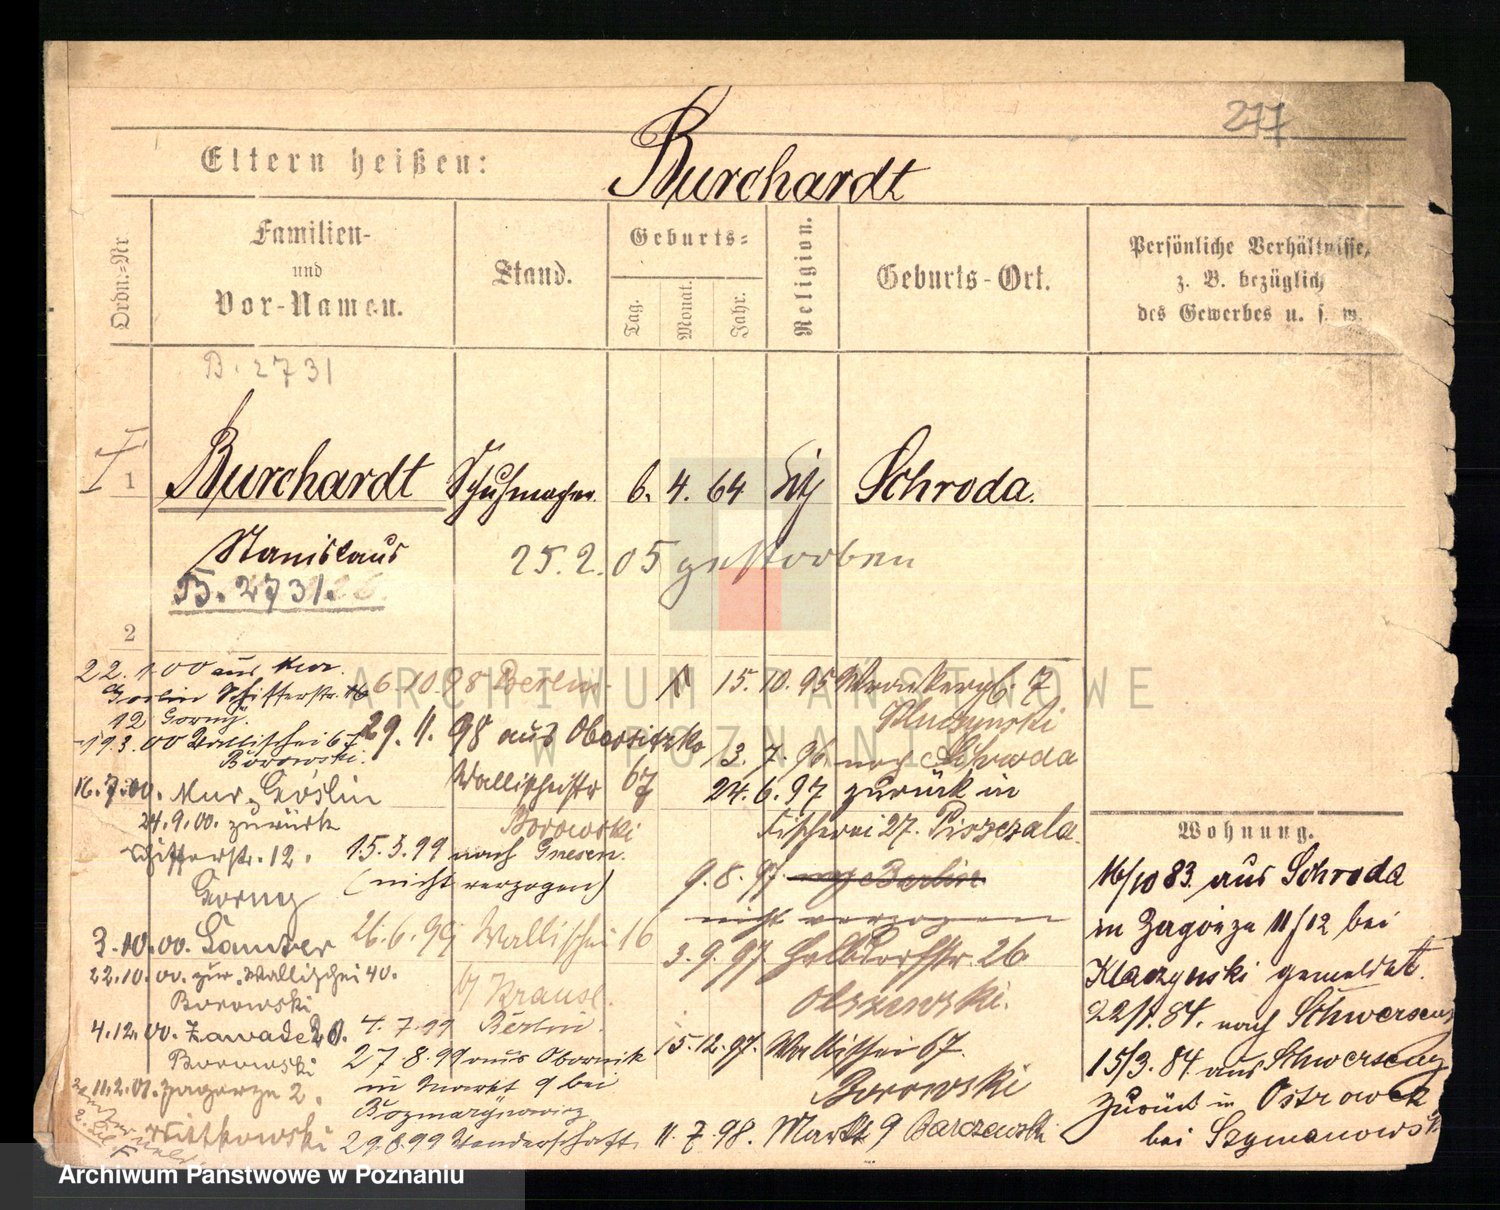 277
Eltern heißen: Burchardt
Ordn.=Nr.
Familien-
und
Vor-Namen.
Stand.
Geburts=
Tag.
Monat.
Jahr.
Religion.
Geburts-Ort.
Persönliche Verhältnisse,
z. B. bezüglich
des Gewerbes u. s. w.
B. 2731
I
1 Burchardt Schuhmacher 6. 4. 64 Schroda.
Stanislaus
25. 2. 05 gestorben
B. 2731.
2
22. 1. 00 aus Mur.
Goslin Schifferstr.
12 Gorny.
19.3.00 Wallischei 67
Borowski.
16.7.00. Mur. Goslin
24.9.00. zurück
Schifferstr. 12.
Gorny
3.10.00. Samter
22.10.00. zur. Wallischei 40.
Borowski
4.12.00. Zawade 20.
Borowski
11.2.01. Zagorze 2.
Witkowski
6.10.98 Berlin
29. 11. 98 aus Obersitzko
Wallischeistr 67
Borowski
15.3.99 nach Gnesen.
(nicht verzogen)
26.6.99 Wallischei 16
b/ Krause.
4.7.99 Berlin.
27.8.99 aus Obornik
in Markt 9 bei
29.8.99 Wanderschaft
15. 10. 95 Wronkerstr. 7
3. 7. 96 nach Schroda
24. 6. 97 zurück in
Fischerei 27. Piszczala
9. 8. 97. nach Berlin
nicht verzogen
3. 9. 97 Halbdorfstr. 26
Olszewski.
15. 12. 97. Wallischei 67.
Borowski
11. 7. 98. Markt 9 Barczewski
Wohnung.
16/10 83. aus Schroda
in Zagorze 11/12 bei
Klaczynski gemeldet.
84. nach Schwersenz
15/3. 84 aus Schwersenz
zurück in Ostrowek
bei Szymanowski
ARCHIWUM PAŃSTWOWE
W POZNANIU
Archiwum Państwowe w Poznaniu